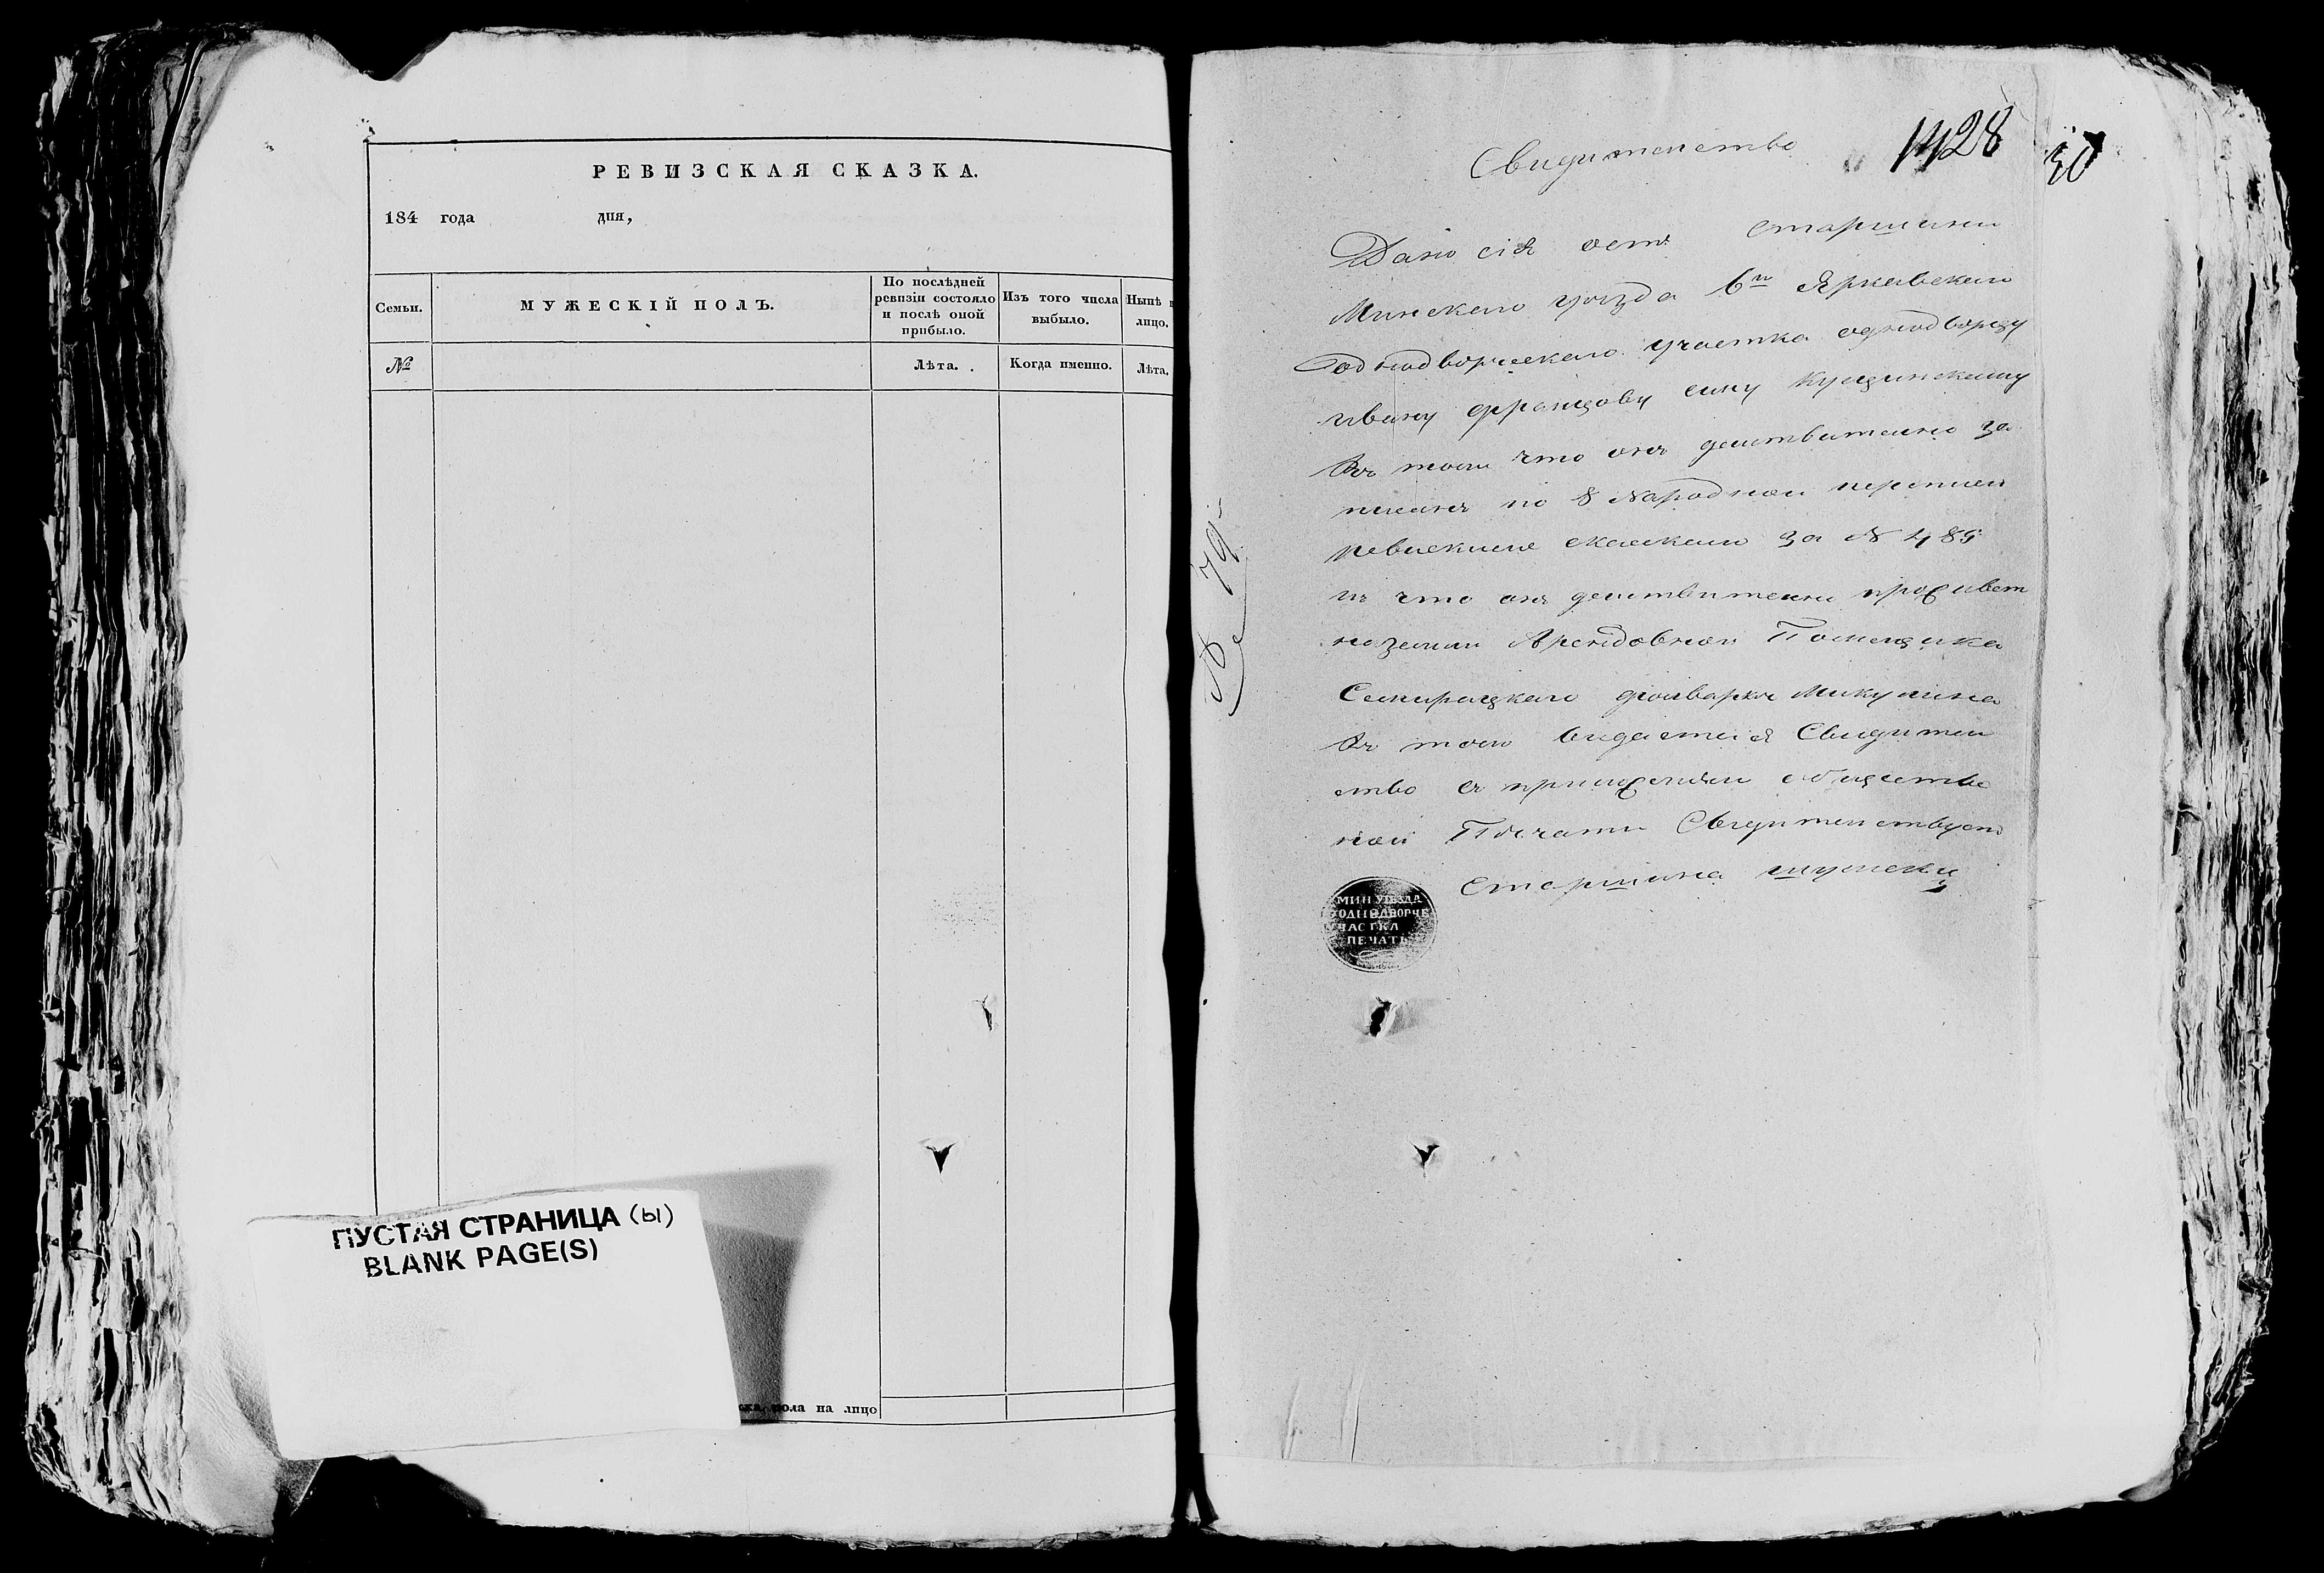 РЕВИЗСКАЯ СКАЗКА.
184 года дня,
Семьи.
МУЖЕСКІЙ ПОЛЪ.
По послѣдней
ревизіи состояло
и послѣ оной
прибыло.
Изъ того числа
выбыло.
Нынѣ н
лицо.
№
Лѣта.
Когда именно.
Лѣта.
ПУСТАЯ СТРАНИЦА (ы)
BLANK PAGE(S)
пола на лицо
Свидителство
128
30
Дано сія отъ старшини
Минскаго уезда 6го Ярковскаго
Однодворческаго участка однодворцу
ивану францову сину
Въ том что онъ деиствително за
писанъ по 8 Народнои переписи
ревискими скасками за № 489
и что онъ деиствителни проживет
на земли Арендовнои Помещика
фолварка Микулина
Въ том видается Свидител
ство съ приложениемъ обществе
нои Печати Свидителствует
Старшина
№ 79
МИН УѢЗДА
ОДНОДВОРЧЕ
УЧАСТКА
ПЕЧАТЬ